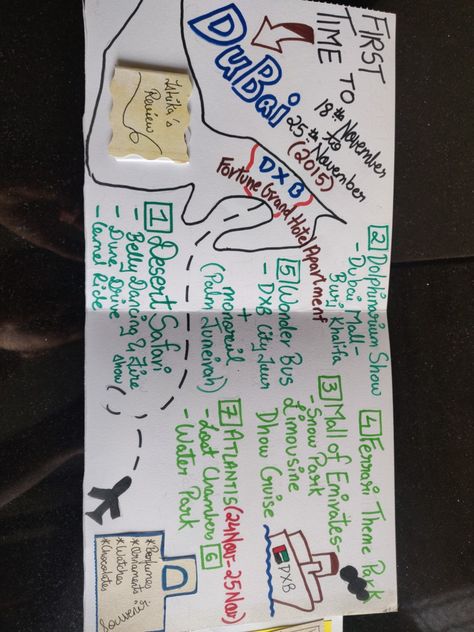 FIRST
TIME TO
DUBai
18th November
to
25th November
(2015)
Ishika's
Review
DXB
Fortune Grand Hotel Apartment
1 Desert Safari
- Belly Dancing & Fire show
- Dune Drive
- Camel Ride
2 Dolphinarium Show
- Dubai Mall -
Burj Khalifa
3 Mall of Emirates -
- Snow Park
Limousine
Dhow Cruise
4 Ferrari Theme Park
5 Wonder Bus
- DXB City Tour
+
monorail
(Palm Jumeirah)
7 ATLANTIS (24 Nov - 25 Nov)
- Lost Chambers 6
- Water Park
DXB
*Perfumes
*Ornaments
*Watches
*Chocolates
Souvenir